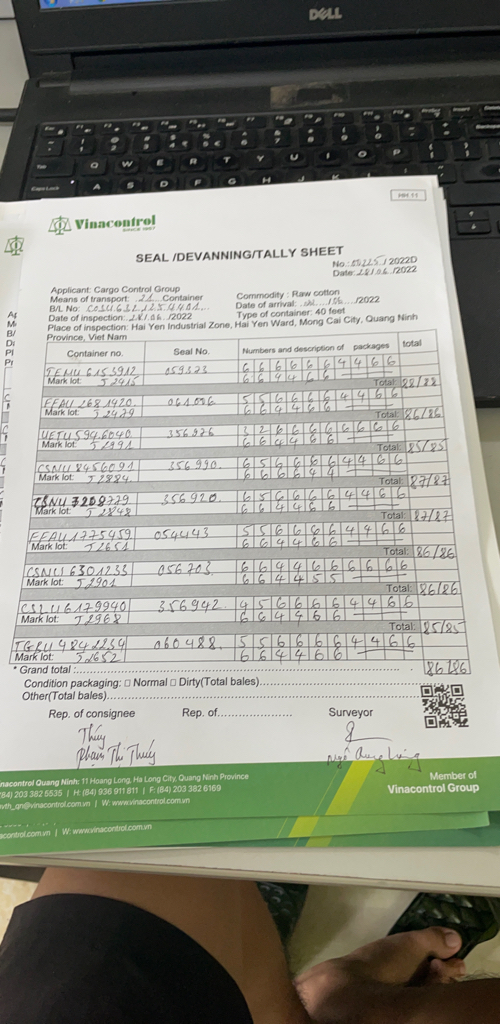 DELL
PPC 11
Vinacontrol
SINCE 1957
SEAL /DEVANNING/TALLY SHEET
No.: 00225 / 2022D
Date: 28/06 /2022
Applicant: Cargo Control Group
Commodity : Raw cotton
Means of transport: 21 Container
Date of arrival: /06 /2022
B/L No: COSU6321254401
Type of container: 40 feet
Date of inspection: 28/06 /2022
Place of inspection: Hai Yen Industrial Zone, Hai Yen Ward, Mong Cai City, Quang Ninh
Province, Viet Nam
Container no. Seal No. Numbers and description of packages total
TEMU 6153912 059373 6 6 6 6 6 6 4 4 6 6
Mark lot: J2415 6 6 4 4 6 6
Total: 88/88
FFAU 2681420 061086 5 5 6 6 6 6 4 4 6 6
Mark lot: J2479 6 6 4 4 6 6
Total: 86/86
UETU 5946040 356976 3 2 6 6 6 6 6 6 6 6
Mark lot: J2991 6 6 4 4 6 6
Total: 85/85
CSNU 8456091 356990 6 5 6 6 6 6 4 4 6 6
Mark lot: J2884 6 6 6 6 4 4
Total: 87/87
CSNU 7208779 356920 6 5 6 6 6 6 4 4 6 6
Mark lot: J2848 6 6 4 4 6 6
Total: 87/87
FFAU 1775459 054443 5 5 6 6 6 6 4 4 6 6
Mark lot: J2651 6 6 4 4 6 6
Total: 86/86
CSNU 6301233 056703 6 6 4 4 6 6 6 6 6 6
Mark lot: J2901 6 6 4 4 5 5
Total: 86/86
CSLU 6179940 356942 4 5 6 6 6 6 4 4 6 6
Mark lot: J2968 6 6 4 4 6 6
Total: 85/85
TGBU 4842234 060488 5 5 6 6 6 6 4 4 6 6
Mark lot: J2652 6 6 4 4 6 6
* Grand total : 86/86
Condition packaging: □ Normal □ Dirty(Total bales)
Other(Total bales)
Rep. of consignee Rep. of Surveyor
Thúy
Phạm Thị Thúy
nacontrol Quang Ninh: 11 Hoang Long, Ha Long City, Quang Ninh Province
(84) 203 382 5535 | H: (84) 936 911 811 | F: (84) 203 382 6169
vth_qn@vinacontrol.com.vn | W: www.vinacontrol.com.vn
Member of
Vinacontrol Group
acontrol.com.vn | W: www.vinacontrol.com.vn